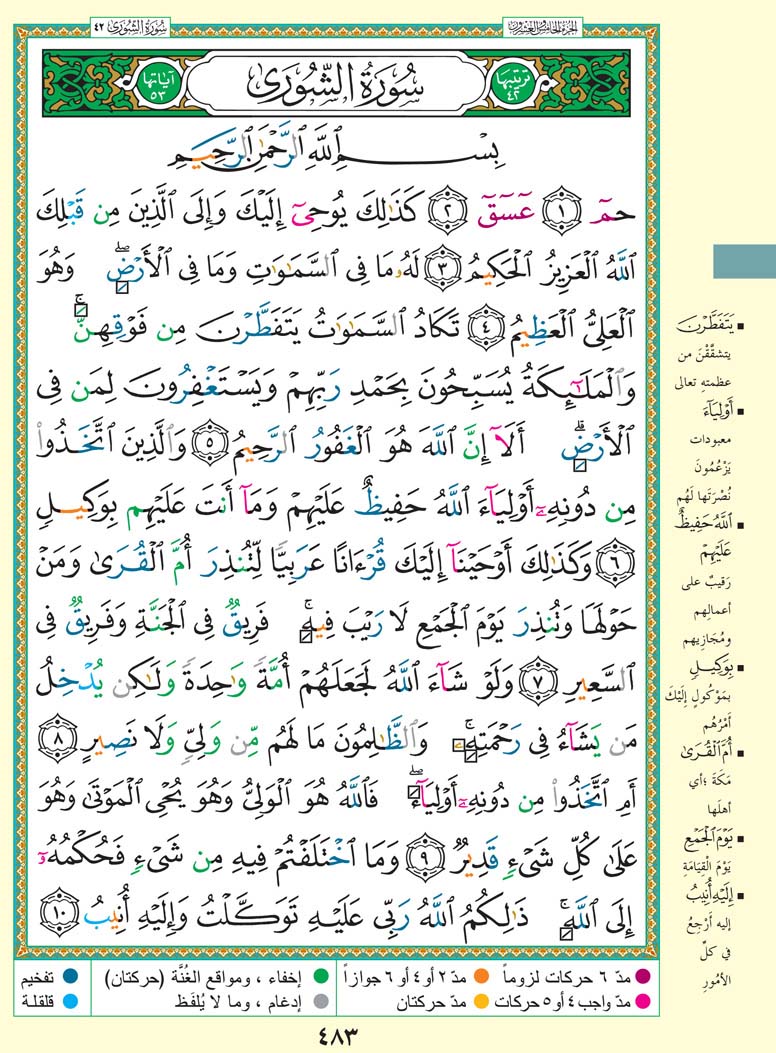 الجزء الخامس والعشرون
سُورَةُ الشُّورَىٰ ٤٢
ترتيبها ٤٢
سُورَةُ الشُّورَىٰ
آياتها ٥٣
بِسْمِ ٱللَّهِ ٱلرَّحْمَٰنِ ٱلرَّحِيمِ
حمٓ ١ عٓسٓقٓ ٢ كَذَٰلِكَ يُوحِىٓ إِلَيْكَ وَإِلَى ٱلَّذِينَ مِن قَبْلِكَ
ٱللَّهُ ٱلْعَزِيزُ ٱلْحَكِيمُ ٣ لَهُۥ مَا فِى ٱلسَّمَٰوَٰتِ وَمَا فِى ٱلْأَرْضِۖ وَهُوَ
ٱلْعَلِىُّ ٱلْعَظِيمُ ٤ تَكَادُ ٱلسَّمَٰوَٰتُ يَتَفَطَّرْنَ مِن فَوْقِهِنَّۚ
وَٱلْمَلَٰٓئِكَةُ يُسَبِّحُونَ بِحَمْدِ رَبِّهِمْ وَيَسْتَغْفِرُونَ لِمَن فِى
ٱلْأَرْضِۗ أَلَآ إِنَّ ٱللَّهَ هُوَ ٱلْغَفُورُ ٱلرَّحِيمُ ٥ وَٱلَّذِينَ ٱتَّخَذُوا۟
مِن دُونِهِۦٓ أَوْلِيَآءَ ٱللَّهُ حَفِيظٌ عَلَيْهِمْ وَمَآ أَنتَ عَلَيْهِم بِوَكِيلٍ
٦ وَكَذَٰلِكَ أَوْحَيْنَآ إِلَيْكَ قُرْءَانًا عَرَبِيًّا لِّتُنذِرَ أُمَّ ٱلْقُرَىٰ وَمَنْ
حَوْلَهَا وَتُنذِرَ يَوْمَ ٱلْجَمْعِ لَا رَيْبَ فِيهِۚ فَرِيقٌ فِى ٱلْجَنَّةِ وَفَرِيقٌ فِى
ٱلسَّعِيرِ ٧ وَلَوْ شَآءَ ٱللَّهُ لَجَعَلَهُمْ أُمَّةً وَٰحِدَةً وَلَٰكِن يُدْخِلُ
مَن يَشَآءُ فِى رَحْمَتِهِۦۚ وَٱلظَّٰلِمُونَ مَا لَهُم مِّن وَلِىٍّ وَلَا نَصِيرٍ ٨
أَمِ ٱتَّخَذُوا۟ مِن دُونِهِۦٓ أَوْلِيَآءَۖ فَٱللَّهُ هُوَ ٱلْوَلِىُّ وَهُوَ يُحْىِ ٱلْمَوْتَىٰ وَهُوَ
عَلَىٰ كُلِّ شَىْءٍ قَدِيرٌ ٩ وَمَا ٱخْتَلَفْتُمْ فِيهِ مِن شَىْءٍ فَحُكْمُهُۥٓ
إِلَى ٱللَّهِۚ ذَٰلِكُمُ ٱللَّهُ رَبِّى عَلَيْهِ تَوَكَّلْتُ وَإِلَيْهِ أُنِيبُ ١٠
▪ يَتَفَطَّرْنَ
يتشقَّقْنَ من
عظمتهِ تعالى
▪ أَوْلِيَآءَ
معبودات
يَزْعُمُونَ
نُصْرَتَها لَهُم
▪ ٱللَّهُ حَفِيظٌ
عَلَيْهِمْ
رَقيبٌ على
أعمالِهم
ومُجَازِيهم
▪ بِوَكِيلٍ
بمَوْكُولٍ إليْكَ
أمْرُهُم
▪ أُمَّ ٱلْقُرَىٰ
مَكَّةَ ؛ أي
أهلَها
▪ يَوْمَ ٱلْجَمْعِ
يَوْمَ الْقِيَامَةِ
▪ إِلَيْهِ أُنِيبُ
إليه أرْجِعُ
في كلِّ
الأمُورِ
مدّ ٦ حركات لزوماً
مدّ ٢ أو ٤ أو ٦ جوازاً
إخفاء ، ومواقع الغُنَّة (حركتان)
تفخيم
مدّ واجب ٤ أو ٥ حركات
مدّ حركتان
إدغام ، وما لا يُلفَظ
قلقلة
٤٨٣